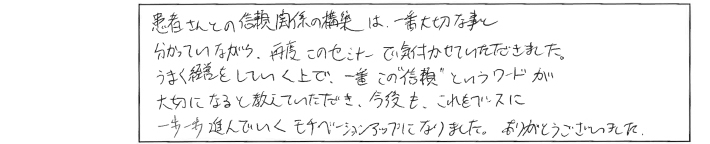 患者さんとの信頼関係の構築は、一番大切な事と
分かっていながら、再度このセミナーで気付かせていただきました。
うまく経営をしていく上で、一番この“信頼”というワードが
大切になると教えていただき、今後も、これをベースに
一歩一歩進んでいくモチベーションアップになりました。ありがとうございました。